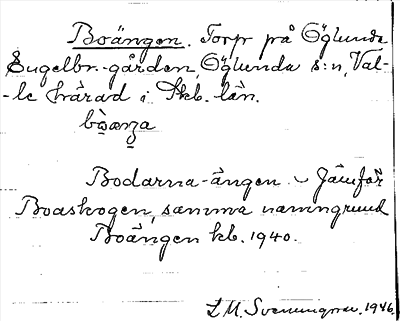 Boängen. Torp på Öglunda
Engelbr.-gården, Öglunda s:n, Val-
-le härad i Skb. län.
Bodarna-ängen ~ Jämför
Boaskogen, samma namngrund
Boängen kb. 1940.
L M. Svenungson. 1946.